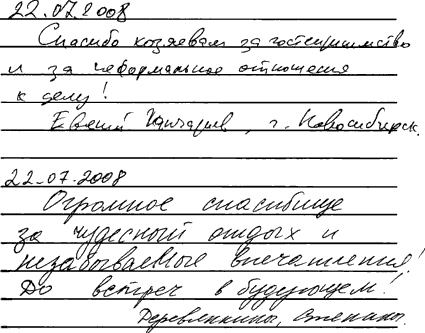 22.07.2008
Спасибо хозяевам за гостеприимство
и за неформальное отношения
к делу!
Евгений Гончаров, г. Новосибирск.
22.07.2008
Огромное спасибище
за чудесный отдых и
незабываемые впечатления!
До встреч в будующем!
Деревянкины, Степины.